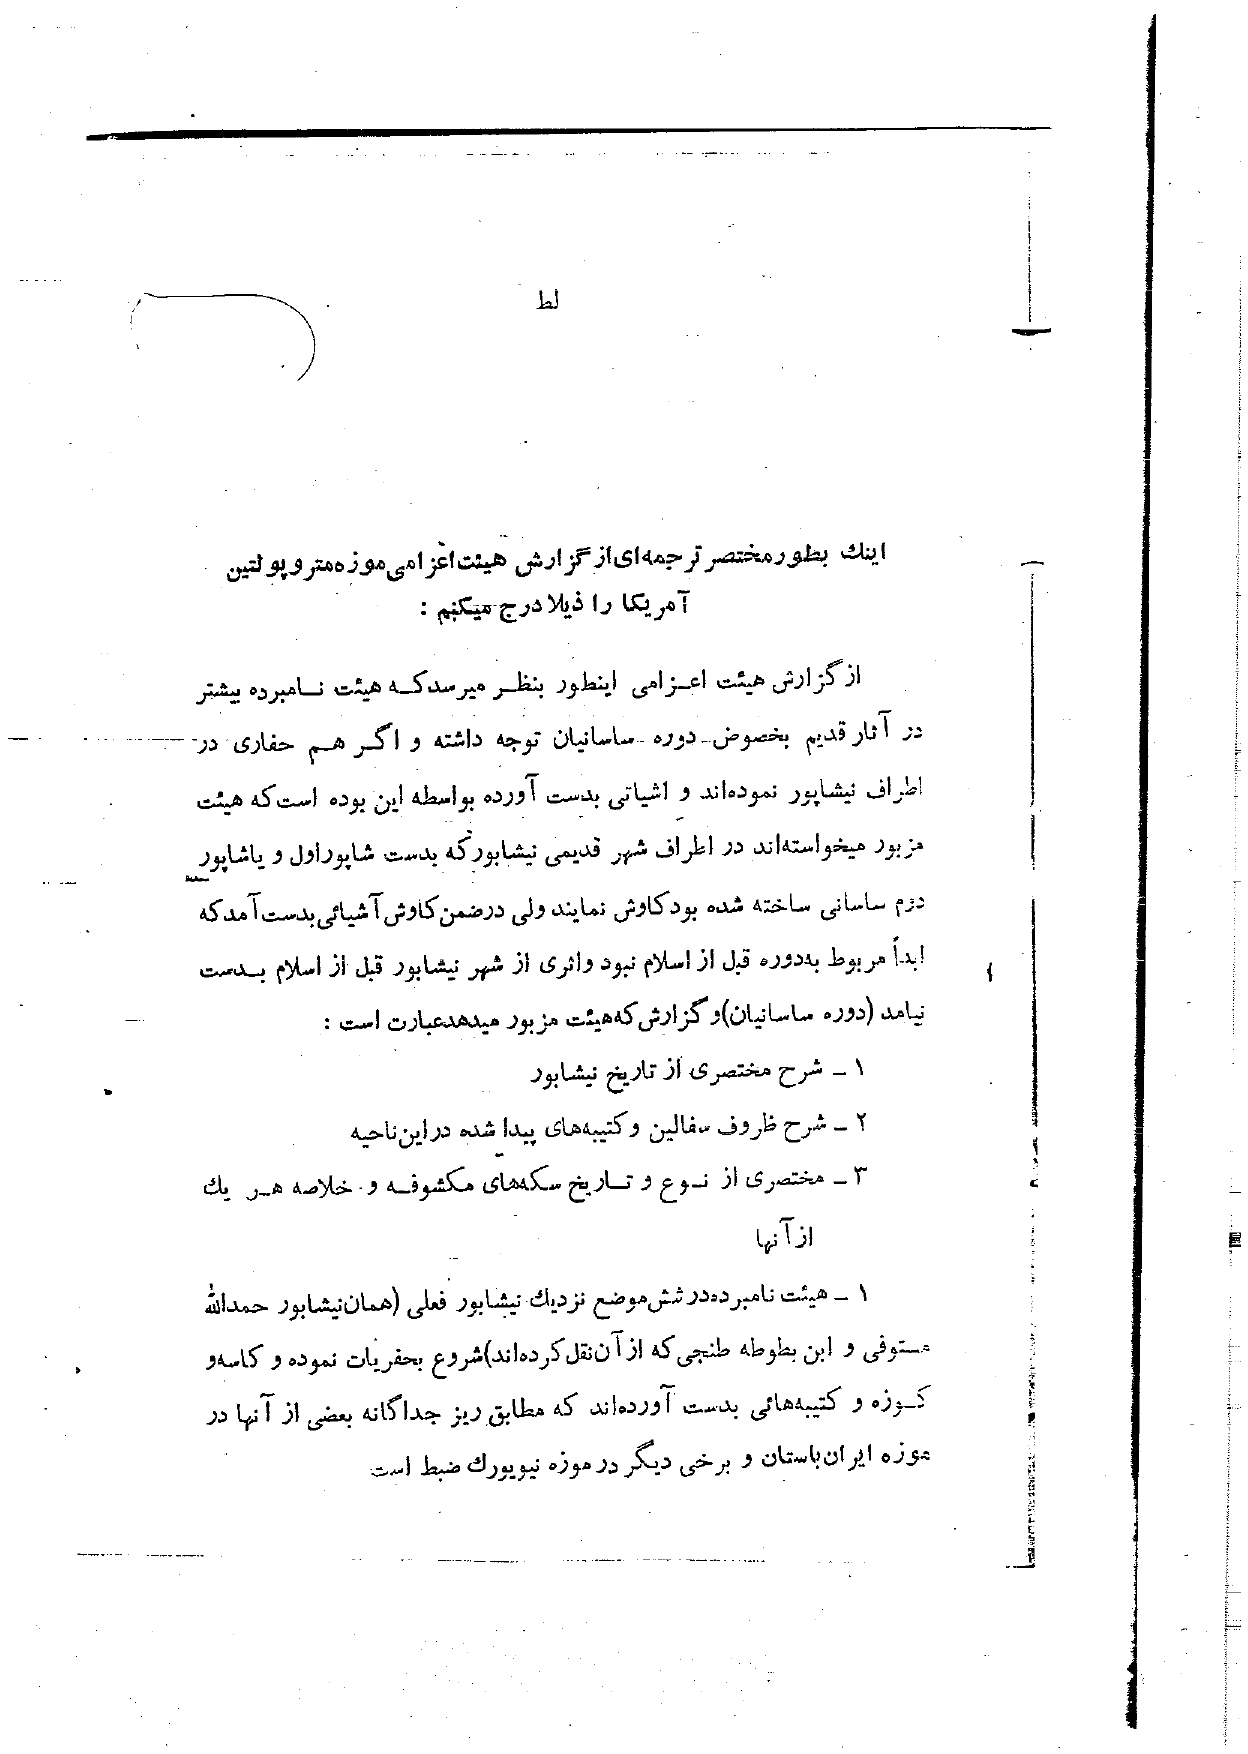 لط
اینك بطور مختصر ترجمه‌ای از گزارش هیئت اعزامی موزه متروپولتین
آمریکا را ذیلا درج میکنم :
از گزارش هیئت اعـزامی اینطور بنظـر میرسد کـه هیئت نـامبرده بیشتر
در آثار قدیم بخصوص دوره ساسانیان توجه داشته و اگـر هـم حفاری در
اطراف نیشاپور نموده‌اند و اشیائی بدست آورده بواسطه این بوده است که هیئت
مزبور میخواسته‌اند در اطراف شهر قدیمی نیشابور که بدست شاپور اول و یا شاپور
دوم ساسانی ساخته شده بود کاوش نمایند ولی در ضمن کاوش آشیائی بدست آمد که
ابداً مربوط به‌دوره قبل از اسلام نبود و اثری از شهر نیشابور قبل از اسلام بـدست
نیامد (دوره ساسانیان) و گزارش که هیئت مزبور میدهد عبارت است :
۱ ـ شرح مختصری از تاریخ نیشابور
۲ ـ شرح ظروف سفالین و کتیبه‌های پیدا شده در این ناحیه
۳ ـ مختصری از نـوع و تـاریخ سکه‌های مکشوفـه و خلاصه هـر یك
از آنها
۱ ـ هیئت نامبرده در شش موضع نزدیك نیشابور فعلی (همان نیشابور حمدالله
مستوفی و ابن بطوطه طنجی که از آن نقل کرده‌اند) شروع بحفریات نموده و کاسه و
کـوزه و کتیبه‌هائی بدست آورده‌اند که مطابق ریز جداگانه بعضی از آنها در
موزه ایران باستان و برخی دیگر در موزه نیویورك ضبط است